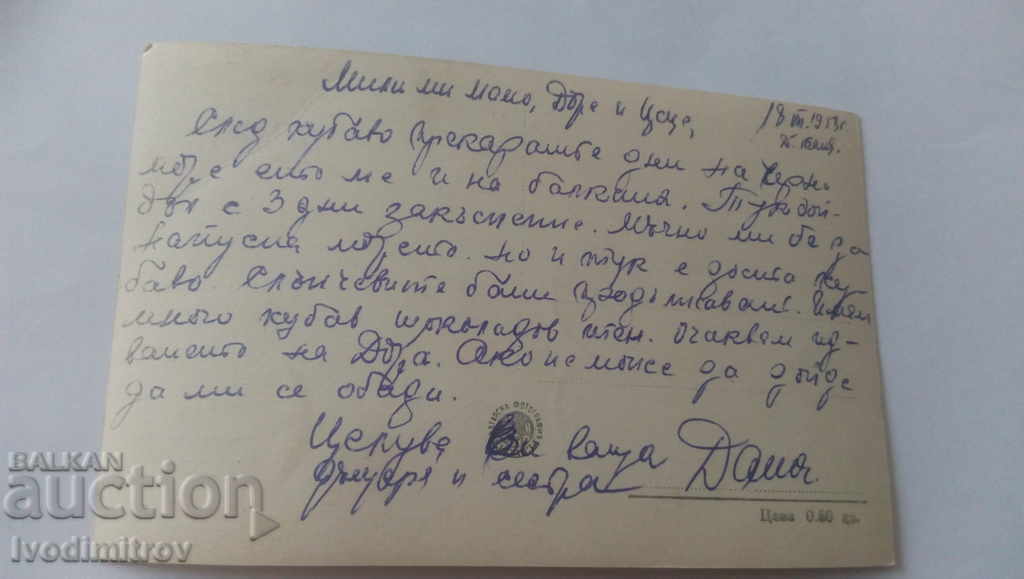 Мили ми мамо, Доре и Цеце,
18 III. 1953 г.
След хубаво прекараните дни на Черно
море ето ме и на балкана. Тук дой-
дох с 3 дни закъснение. Мъчно ми бе да
напусна морето. Но и тук е доста ху
баво. Слънчевите бани продължават. Имам
много хубав шоколадов тен. Очаквам ид-
ването на Дора. Ако не може да дойде
да ми се обади.
Целува Ви ваша
дъщеря и сестра
Цена 0.80 лв.
BALKAN
auction
Ivodimitrov